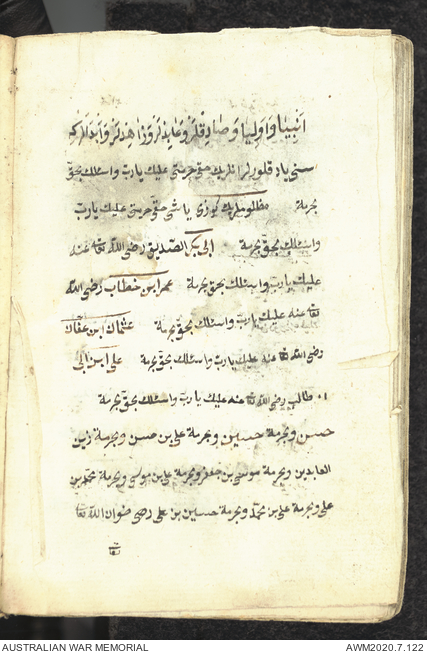 انبیا و اولیا و صادقلر و عابدلر و زاهدلر و ابداللر که
سنی یاد قلورلر انلرك حق حرمتی علیك یارب واسئلك بحق
بحرمة مظلوملرك کوزی یاشی حق حرمتی علیك یارب
واسئلك بحق بحرمة ابی بكر الصدیق رضی الله تعا عنه
علیك یارب واسئلك بحق بحرمة عمر ابن خطاب رضی الله
تعا عنه علیك یارب واسئلك بحق بحرمة عثمان ابن عفان
رضی الله تعا عنه علیك یارب واسئلك بحق بحرمة علی ابن ابی
طالب رضی الله تعا عنه علیك یارب واسئلك بحق بحرمة
حسن وبحرمة حسین وبحرمة علی بن حسن وبحرمة زین
العابدین وبحرمة موسی بن جعفر وبحرمة علی بن موسی وبحرمة محمد بن
علی وبحرمة علی بن محمد وبحرمة حسین بن علی رضوان الله تعا
تعا
AUSTRALIAN WAR MEMORIAL AWM2020.7.122